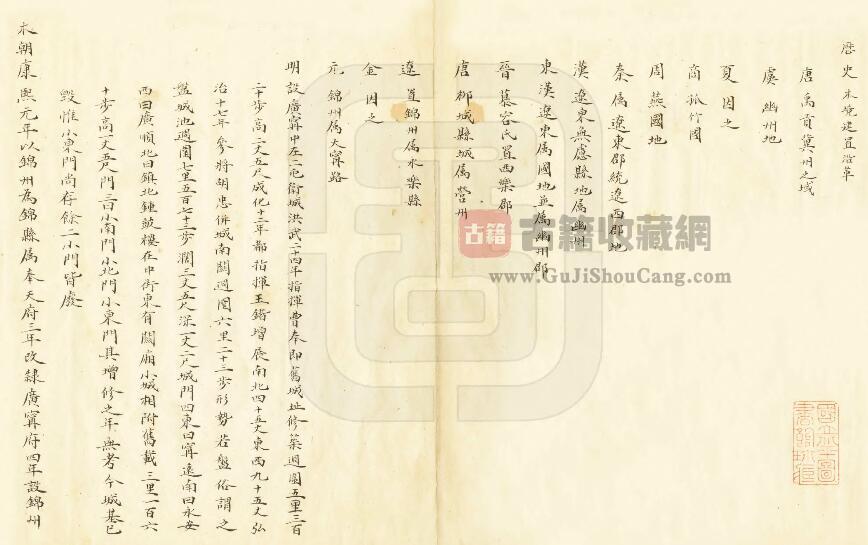 歷史本境建置沿革
唐禹貢冀州之域
虞幽州地
夏因之
商孤竹國
周燕國地
秦屬遼東郡統遼西郡地
漢遼東無慮縣地屬幽州
東漢遼東屬國地並屬幽州郡
晉慕容氏置西樂郡
唐柳城縣城屬營州
遼置錦州屬永樂縣
金因之
元錦州屬大寧路
明設廣寧中左二屯衛城洪武二十四年指揮曹奉即舊城址修築週圍五里三百
二十步高二丈五尺成化十二年都指揮王鍇增展南北四十五丈東西九十五丈弘
治十七年參將胡忠併城南關週圍六里二十三步形勢若盤俗謂之
盤城池週圍七里五百七十三步濶三丈五尺深一丈二尺城門四東曰寧遠南曰永安
西曰廣順北曰鎮北鍾皷樓在中街東有關廂小城相附舊載三里一百六
十步高一丈五尺門三曰小南門小北門小東門其增修之年無考今城基已
毀惟小東門尚存餘二小門皆廢
本朝康熙元年以錦州為錦縣屬奉天府三年改隸廣寧府四年設錦州
古籍
古籍收藏網
www.GuJiShouCang.com